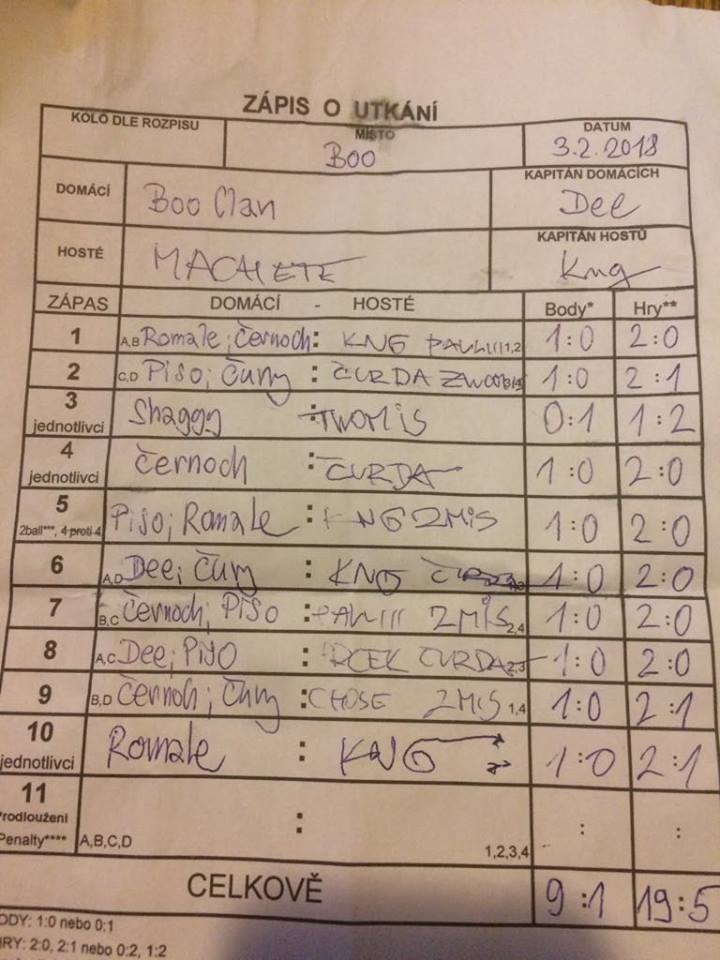 ZÁPIS O UTKÁNÍ
KOLO DLE ROZPISU MÍSTO DATUM
Boo 3.2.2018
DOMÁCÍ Boo Clan KAPITÁN DOMÁCÍCH
Dee
HOSTÉ MACHETE KAPITÁN HOSTŮ
Kng
ZÁPAS DOMÁCÍ - HOSTÉ Body* Hry**
1 A,B Romale; Černoch : KNG PAVLIII 1,2 1:0 2:0
2 C,D Piso; Čury : ČURDA 1:0 2:1
3 jednotlivci Shaggy : TWOMIS 0:1 1:2
4 jednotlivci Černoch : ČURDA 1:0 2:0
5 2ball***, 4 proti 4 Piso; Romale : KNG 2MIS 1:0 2:0
6 A,D Dee; Čury : KNG 1:0 2:0
7 B,C Černoch; Piso : PAVLIII 2MIS 2,4 1:0 2:0
8 A,C Dee; Piso : ČURDA 2,3 1:0 2:0
9 B,D Černoch; Čury : CHOSE 2MIS 1,4 1:0 2:1
10 jednotlivci Romale : KNG 1:0 2:1
11 Prodloužení Penalty**** A,B,C,D : 1,2,3,4 : :
CELKOVĚ 9:1 19:5
ODY: 1:0 nebo 0:1
HRY: 2:0, 2:1 nebo 0:2, 1:2